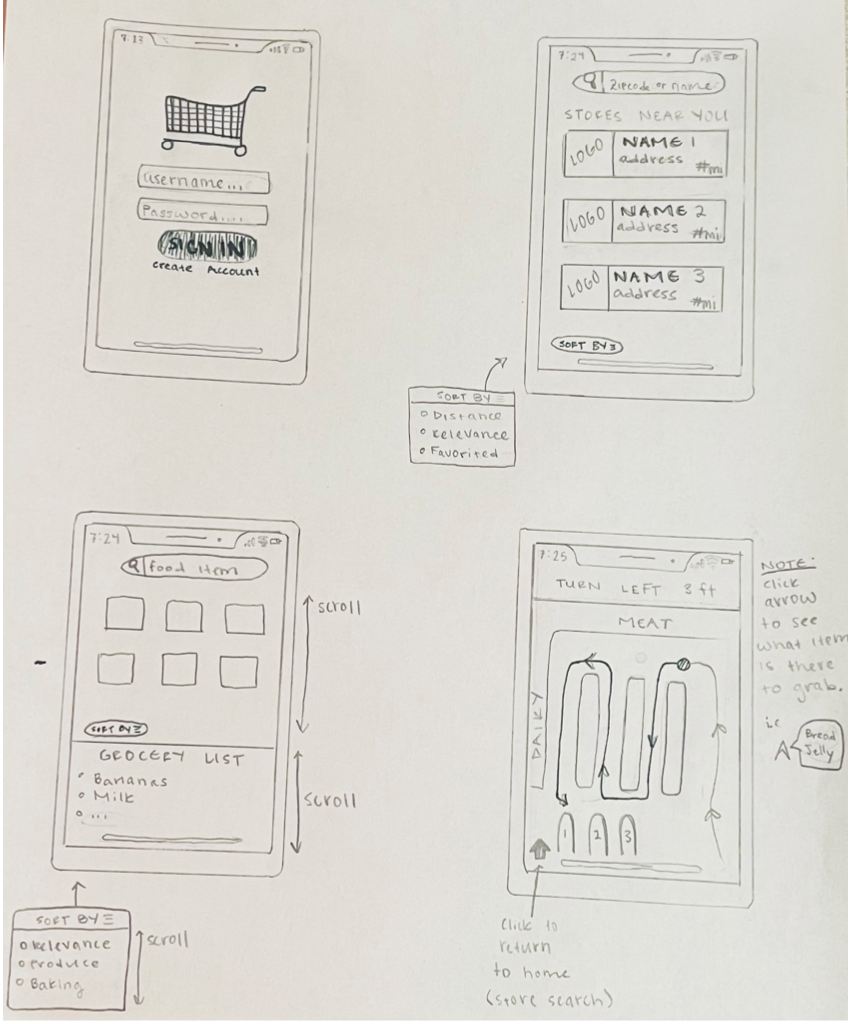 7:23
username...
Password....
SIGN IN
create Account
7:24
Zipcode or name
STORES NEAR YOU
LOGO
NAME 1
address
#mi
LOGO
NAME 2
address
#mi
LOGO
NAME 3
address
#mi
SORT BY
SORT BY
Distance
Relevance
Favorited
7:24
food item
scroll
SORT BY
GROCERY LIST
Bananas
Milk
...
scroll
SORT BY
Relevance
Produce
Baking
scroll
7:25
TURN LEFT 3 ft
MEAT
DAIRY
1
2
3
NOTE:
click
arrow
to see
what item
is there
to grab.
i.e
Bread
Jelly
Click to
return
to home
(store search)